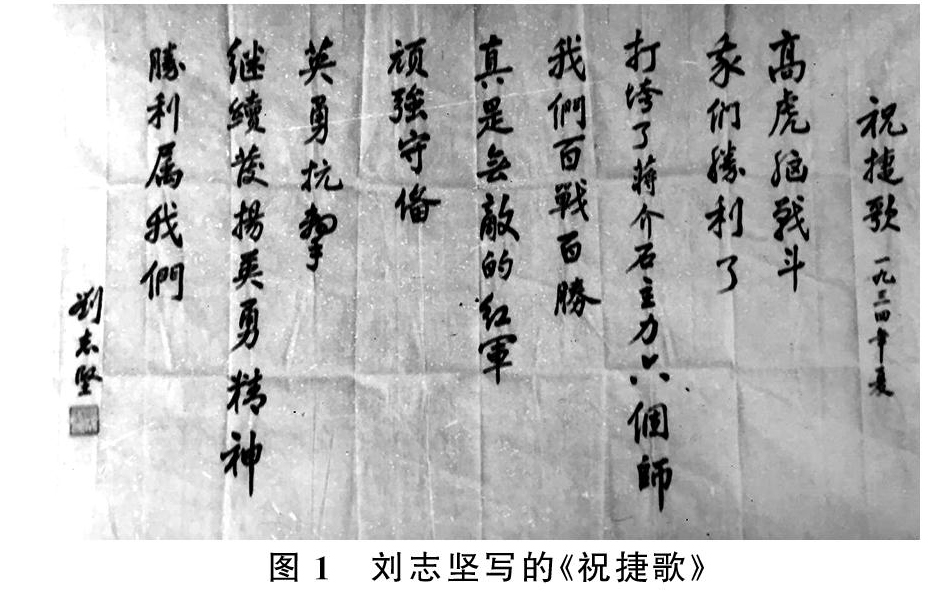 祝捷歌 一九三四年夏
高虎脑戰斗
我们勝利了
打垮了蔣介石主力六個師
我們百戰百勝
真是無敵的紅軍
顽強守俻
英勇抗擊
继續發揚英勇精神
勝利属我們
劉志坚
图1 刘志坚写的《祝捷歌》